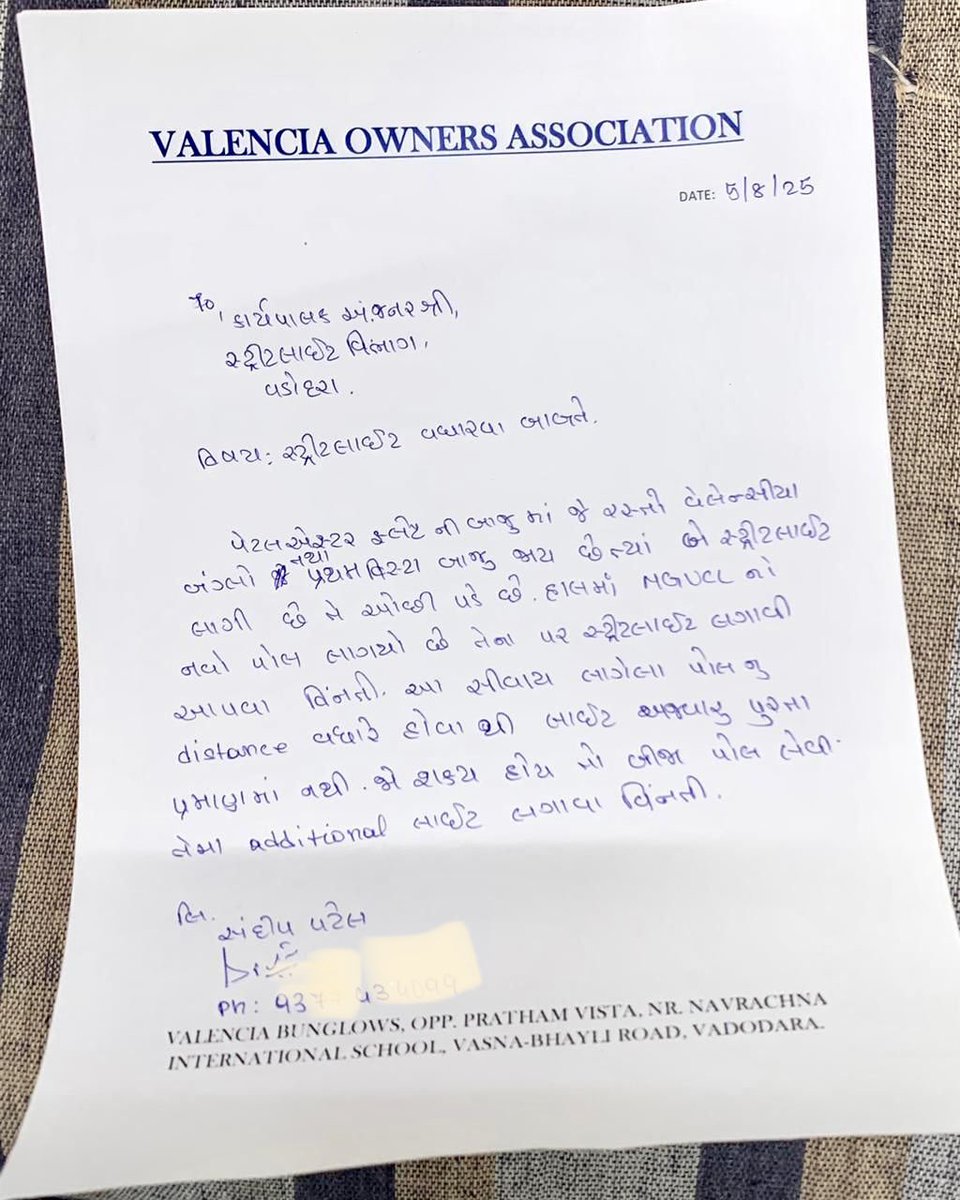 VALENCIA OWNERS ASSOCIATION
DATE: 5/8/25
To,
કાર્યપાલક એંજીનરશ્રી,
સ્ટ્રીટલાઈટ વિભાગ,
વડોદરા.
વિષય: સ્ટ્રીટલાઈટ વધારવા બાબતે.
પેટલ એસ્ટર ફ્લેટ ની બાજુ માં જે રસ્તો વેલેન્સીયા
બંગલો તથા પ્રથમ વિસ્ટા બાજુ જાય છે ત્યાં બે સ્ટ્રીટલાઈટ
લાગી છે તે ઓછી પડે છે. હાલમાં MGVCL નો
નવો પોલ લાગયો છે તેના પર સ્ટ્રીટલાઈટ લગાવી
આપવા વિંનતી. આ સીવાય લાગેલા પોલ નુ
distance વધારે હોવા થી લાઈટ અજવાળુ પુરતા
પ્રમાણમાં નથી. જો શક્ય હોય તો બીજા પોલ લેવી
તેમા additional લાઈટ લગાવા વિંનતી.
લિ.
સંદીપ પટેલ
Ph: 937
VALENCIA BUNGLOWS, OPP. PRATHAM VISTA, NR. NAVRACHNA
INTERNATIONAL SCHOOL, VASNA-BHAYLI ROAD, VADODARA.